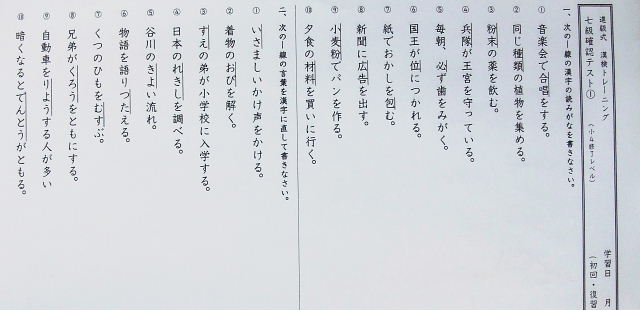 進級式 漢検トレーニング
七級確認テスト① （小4修了レベル）
学習日 月
（初回・復習
一、次の―線の漢字の読みがなを書きなさい。
①音楽会で合唱をする。
②同じ種類の植物を集める。
③粉末の薬を飲む。
④兵隊が王宮を守っている。
⑤毎朝、必ず歯をみがく。
⑥国王が位につかれる。
⑦紙でおかしを包む。
⑧新聞に広告を出す。
⑨小麦粉でパンを作る。
⑩夕食の材料を買いに行く。
二、次の―線の言葉を漢字に直して書きなさい。
①いさましいかけ声をかける。
②着物のおびを解く。
③すえの弟が小学校に入学する。
④日本のれきしを調べる。
⑤谷川のきよい流れ。
⑥物語を語りつたえる。
⑦くつのひもをむすぶ。
⑧兄弟がくろうをともにする。
⑨自動車をりようする人が多い
⑩暗くなるとでんとうがともる。